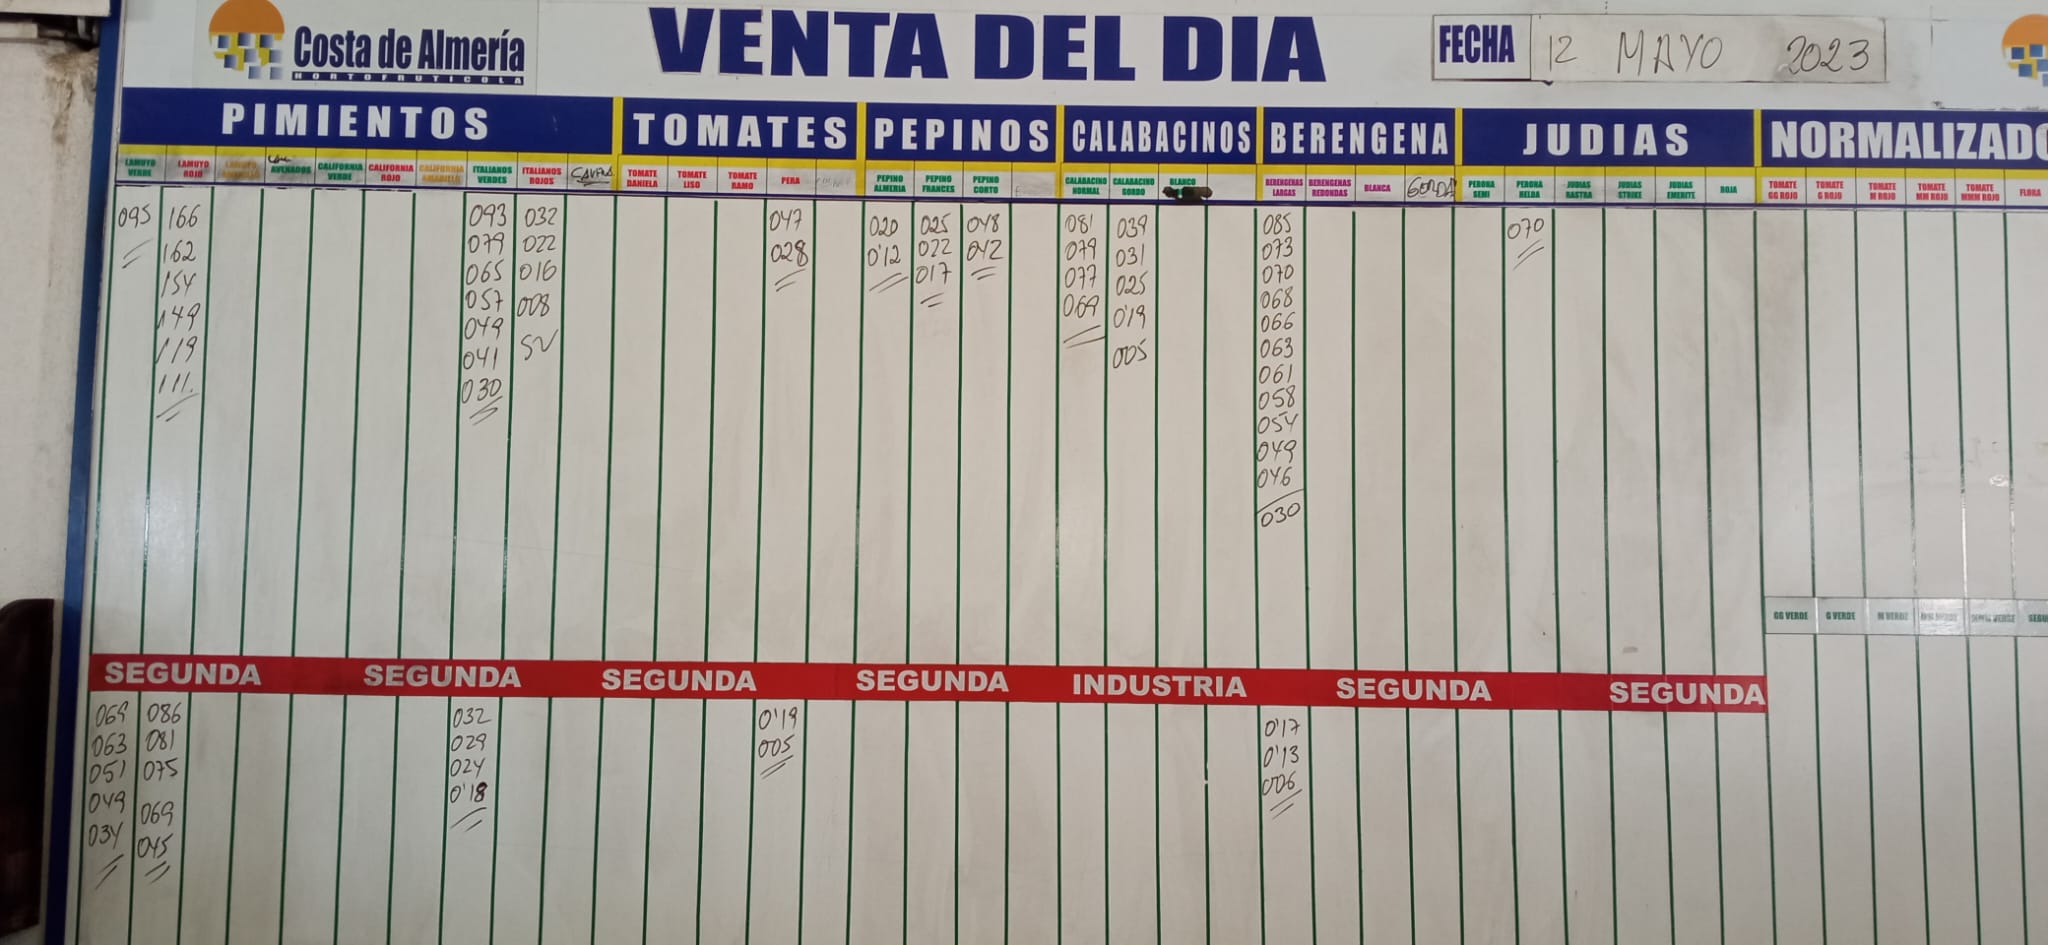 Costa de Almería
HORTOFRUTICOLA
VENTA DEL DIA
FECHA 12 MAYO 2023
PIMIENTOS TOMATES PEPINOS CALABACINOS BERENGENA JUDIAS NORMALIZADO
LAMUYO VERDE
LAMUYO ROJO
LAMUYO AMARILLO
AVENADOS
CALIFORNIA VERDE
CALIFORNIA ROJO
CALIFORNIA AMARILLO
ITALIANOS VERDES
ITALIANOS ROJOS
TOMATE DANIELA
TOMATE LISO
TOMATE RAMO
PERA
PEPINO ALMERIA
PEPINO FRANCES
PEPINO CORTO
CALABACINO NORMAL
CALABACINO GORDO
BLANCO
BERENGENAS LARGAS
BERENGENAS REDONDAS
BLANCA
GORDA
PERONA SEMI
PERONA HELDA
JUDIAS RASTRA
JUDIAS STRIKE
JUDIAS EMERITE
ROJA
TOMATE GG ROJO
TOMATE G ROJO
TOMATE M ROJO
TOMATE MM ROJO
TOMATE MMM ROJO
FLORA
095
166
162
154
149
119
111
093
079
065
057
049
041
030
032
022
016
008
SV
047
028
020
0'12
025
022
017
048
042
081
079
077
069
039
031
025
0'19
005
085
073
070
068
066
063
061
058
054
049
046
030
070
GG VERDE G VERDE M VERDE MM VERDE MMM VERDE SEGU
SEGUNDA SEGUNDA SEGUNDA SEGUNDA INDUSTRIA SEGUNDA SEGUNDA
069
063
051
049
034
086
081
075
069
045
032
029
024
0'18
0'19
005
0'17
0'13
006